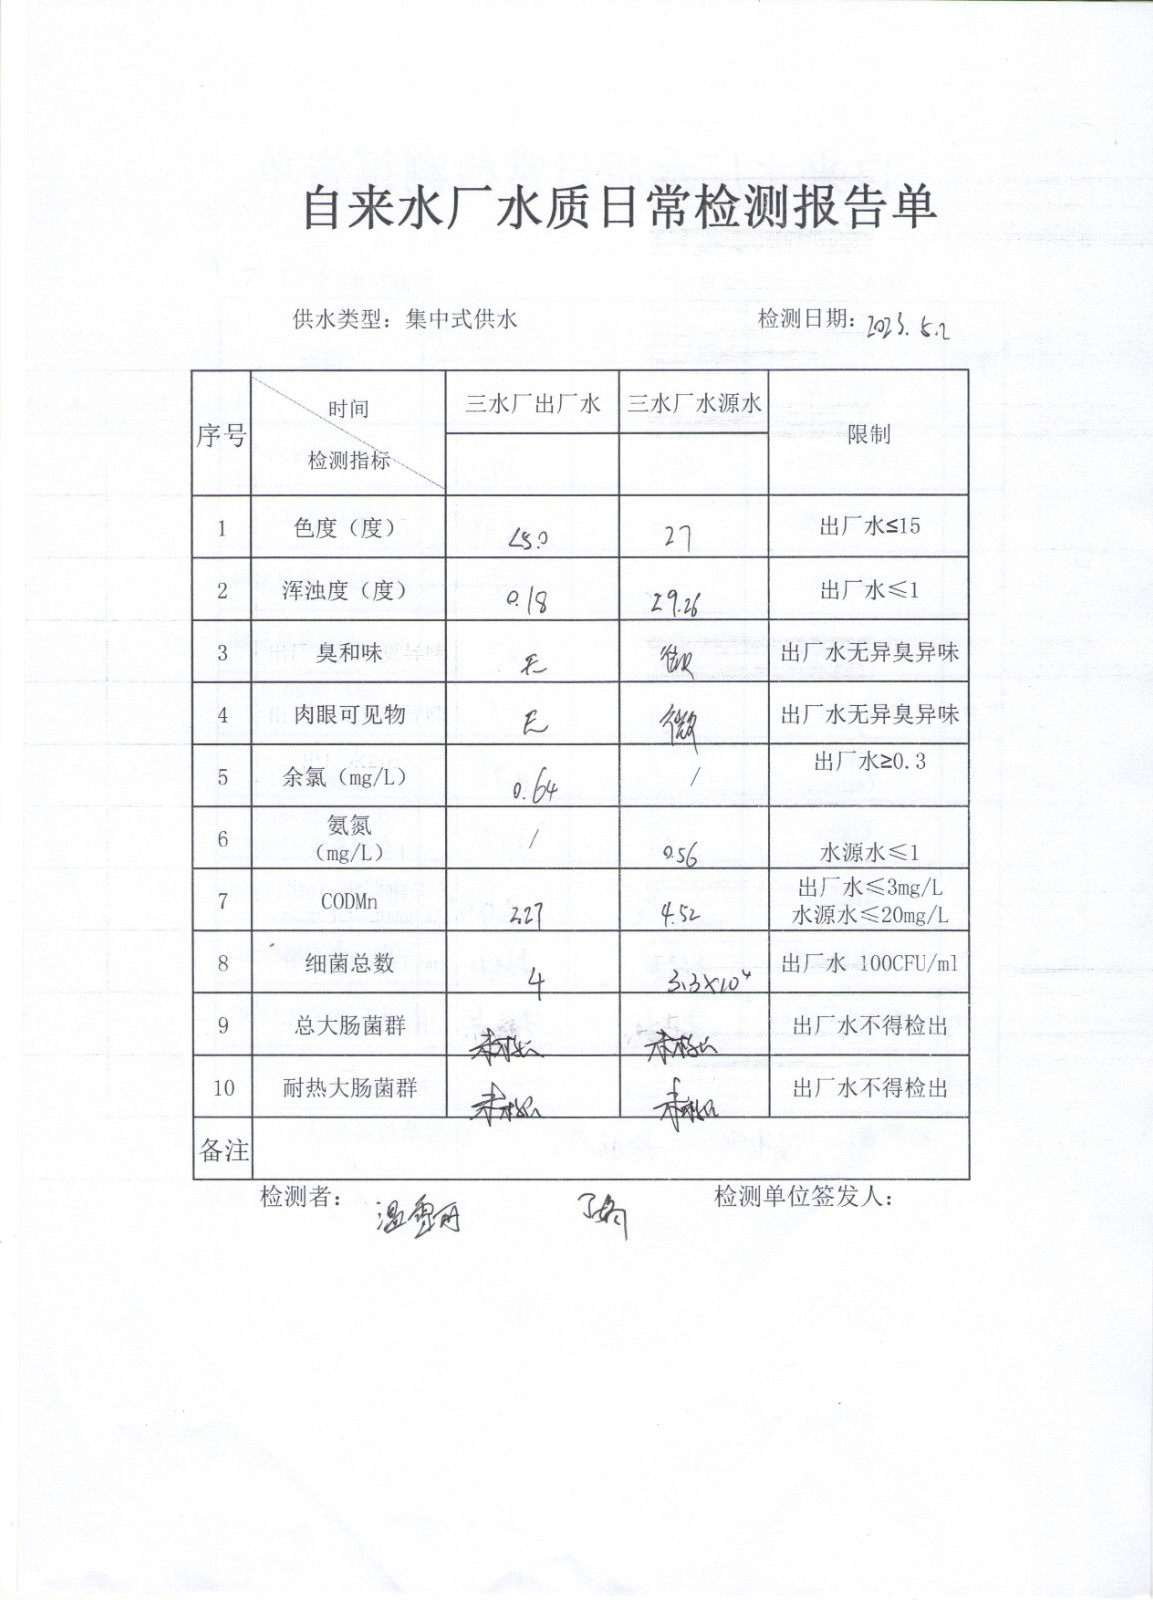 自来水厂水质日常检测报告单
供水类型：集中式供水 检测日期：2023.5.2
序号 时间 检测指标 三水厂出厂水 三水厂水源水 限制
1 色度（度） <5.0 27 出厂水≤15
2 浑浊度（度） 0.18 29.26 出厂水≤1
3 臭和味 无 微 出厂水无异臭异味
4 肉眼可见物 无 微 出厂水无异臭异味
5 余氯（mg/L） 0.64 / 出厂水≥0.3
6 氨氮（mg/L） / 0.56 水源水≤1
7 CODMn 2.27 4.52 出厂水≤3mg/L
水源水≤20mg/L
8 细菌总数 4 3.3×10⁴ 出厂水 100CFU/ml
9 总大肠菌群 未检出 未检出 出厂水不得检出
10 耐热大肠菌群 未检出 未检出 出厂水不得检出
备注
检测者： 检测单位签发人：